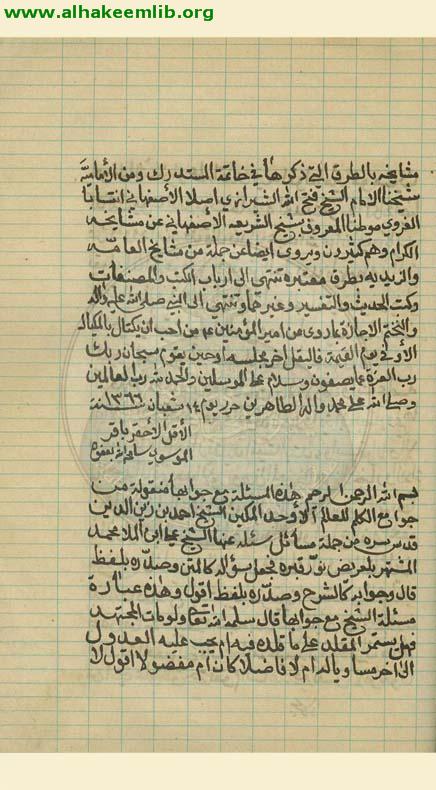 www.alhakeemlib.org
مشايخه بالطرق التي ذكرها في خاتمة المستدرك ومن الأمامية
شيخنا الامام الشيخ فتح الله الشيرازي اصلا الأصفهاني انتسابا
الغروي موطنا المعروف بشيخ الشريعه الأصفهاني عن مشايخه
الكرام وهم كثيرون ويروي ايضا عن جملة من مشايخ العامه
والزيديه بطرق معتبرة تنتهي الى ارباب الكتب والمصنفات
وكتب الحديث والتفسير وغيرهما وتنتهي الى النبي صلى الله عليه وآله
ولنختم الاجازة بما روي عن امير المؤمنين ع من احب ان يكتال بالمكيال
الأوفى يوم القيمة فليقل آخر مجلسه او حين يقوم سبحان ربك
رب العزة عما يصفون وسلام على المرسلين والحمد لله رب العالمين
وصلى الله على محمد وآله الطاهرين حرر يوم ١٤ شعبان ١٣٦٦ سنة
الأقل الأحقر باقر
الموسوي
بسم الله الرحمن الرحيم هذه المسئلة مع جوابها منقولة من
جوامع الكلم للعالم الأوحد الشيخ احمد بن زين الدين
قدس سره من جملة مسائل سئله عنها الشيخ علي ابن الملا محمد
المشهر نور قبره فجعل سؤاله كالمتن وصدره بلفظ
قال وجوابه كالشرح وصدره بلفظ اقول وهذه عبارة
مسئلة الشيخ مع جوابها قال سلمه الله تعالى ولو مات المجتهد
فهل يستمر المقلد على ما قلده فيه ام يجب عليه العدول
الى اخر مساويا له ام لا فاضلا كان ام مفضولا اقول لا